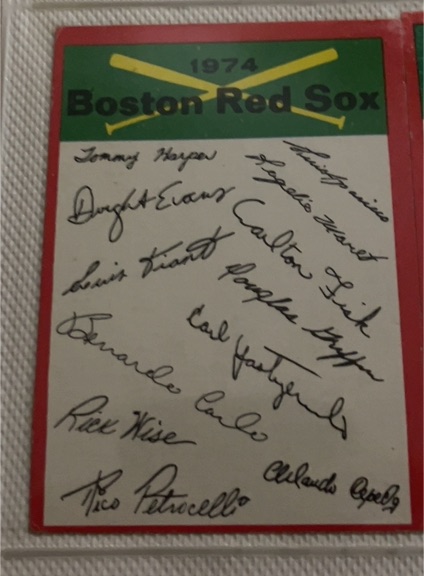 1974
Boston Red Sox
Tommy Harper
Luis Aparicio
Rogelio Moret
Dwight Evans
Carlton Fisk
Luis Tiant
Douglas Griffin
Carl Yastrzemski
Bernardo Carbo
Rick Wise
Rico Petrocelli
Orlando Cepeda